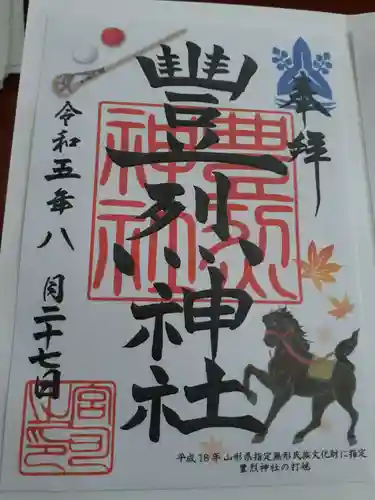 奉拝
豐烈神社
令和五年八月二十七日
豊烈神社
宮司之印
平成18年山形県指定無形民俗文化財に指定
豊烈神社の打毬